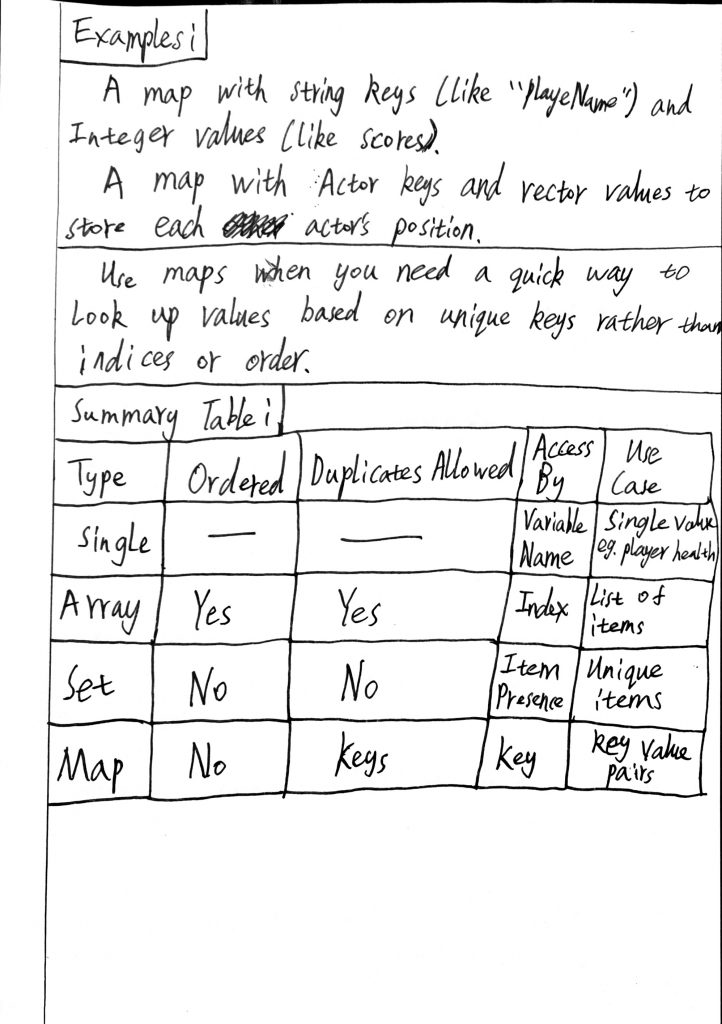 Examples:
A map with string keys (like "playeName") and
Integer values (like scores).
A map with Actor keys and rector values to
store each actor's position.
Use maps when you need a quick way to
Look up values based on unique keys rather than
indices or order.
Summary Table:
Type Ordered Duplicates Allowed Access By Use Case
Single — — Variable Name Single value eg. player health
Array Yes Yes Index List of items
Set No No Item Presence Unique items
Map No keys Key key value pairs